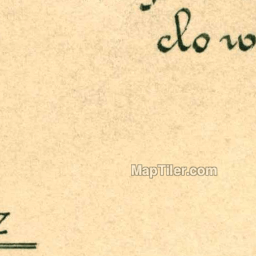 clo w
MapTiler.com
z